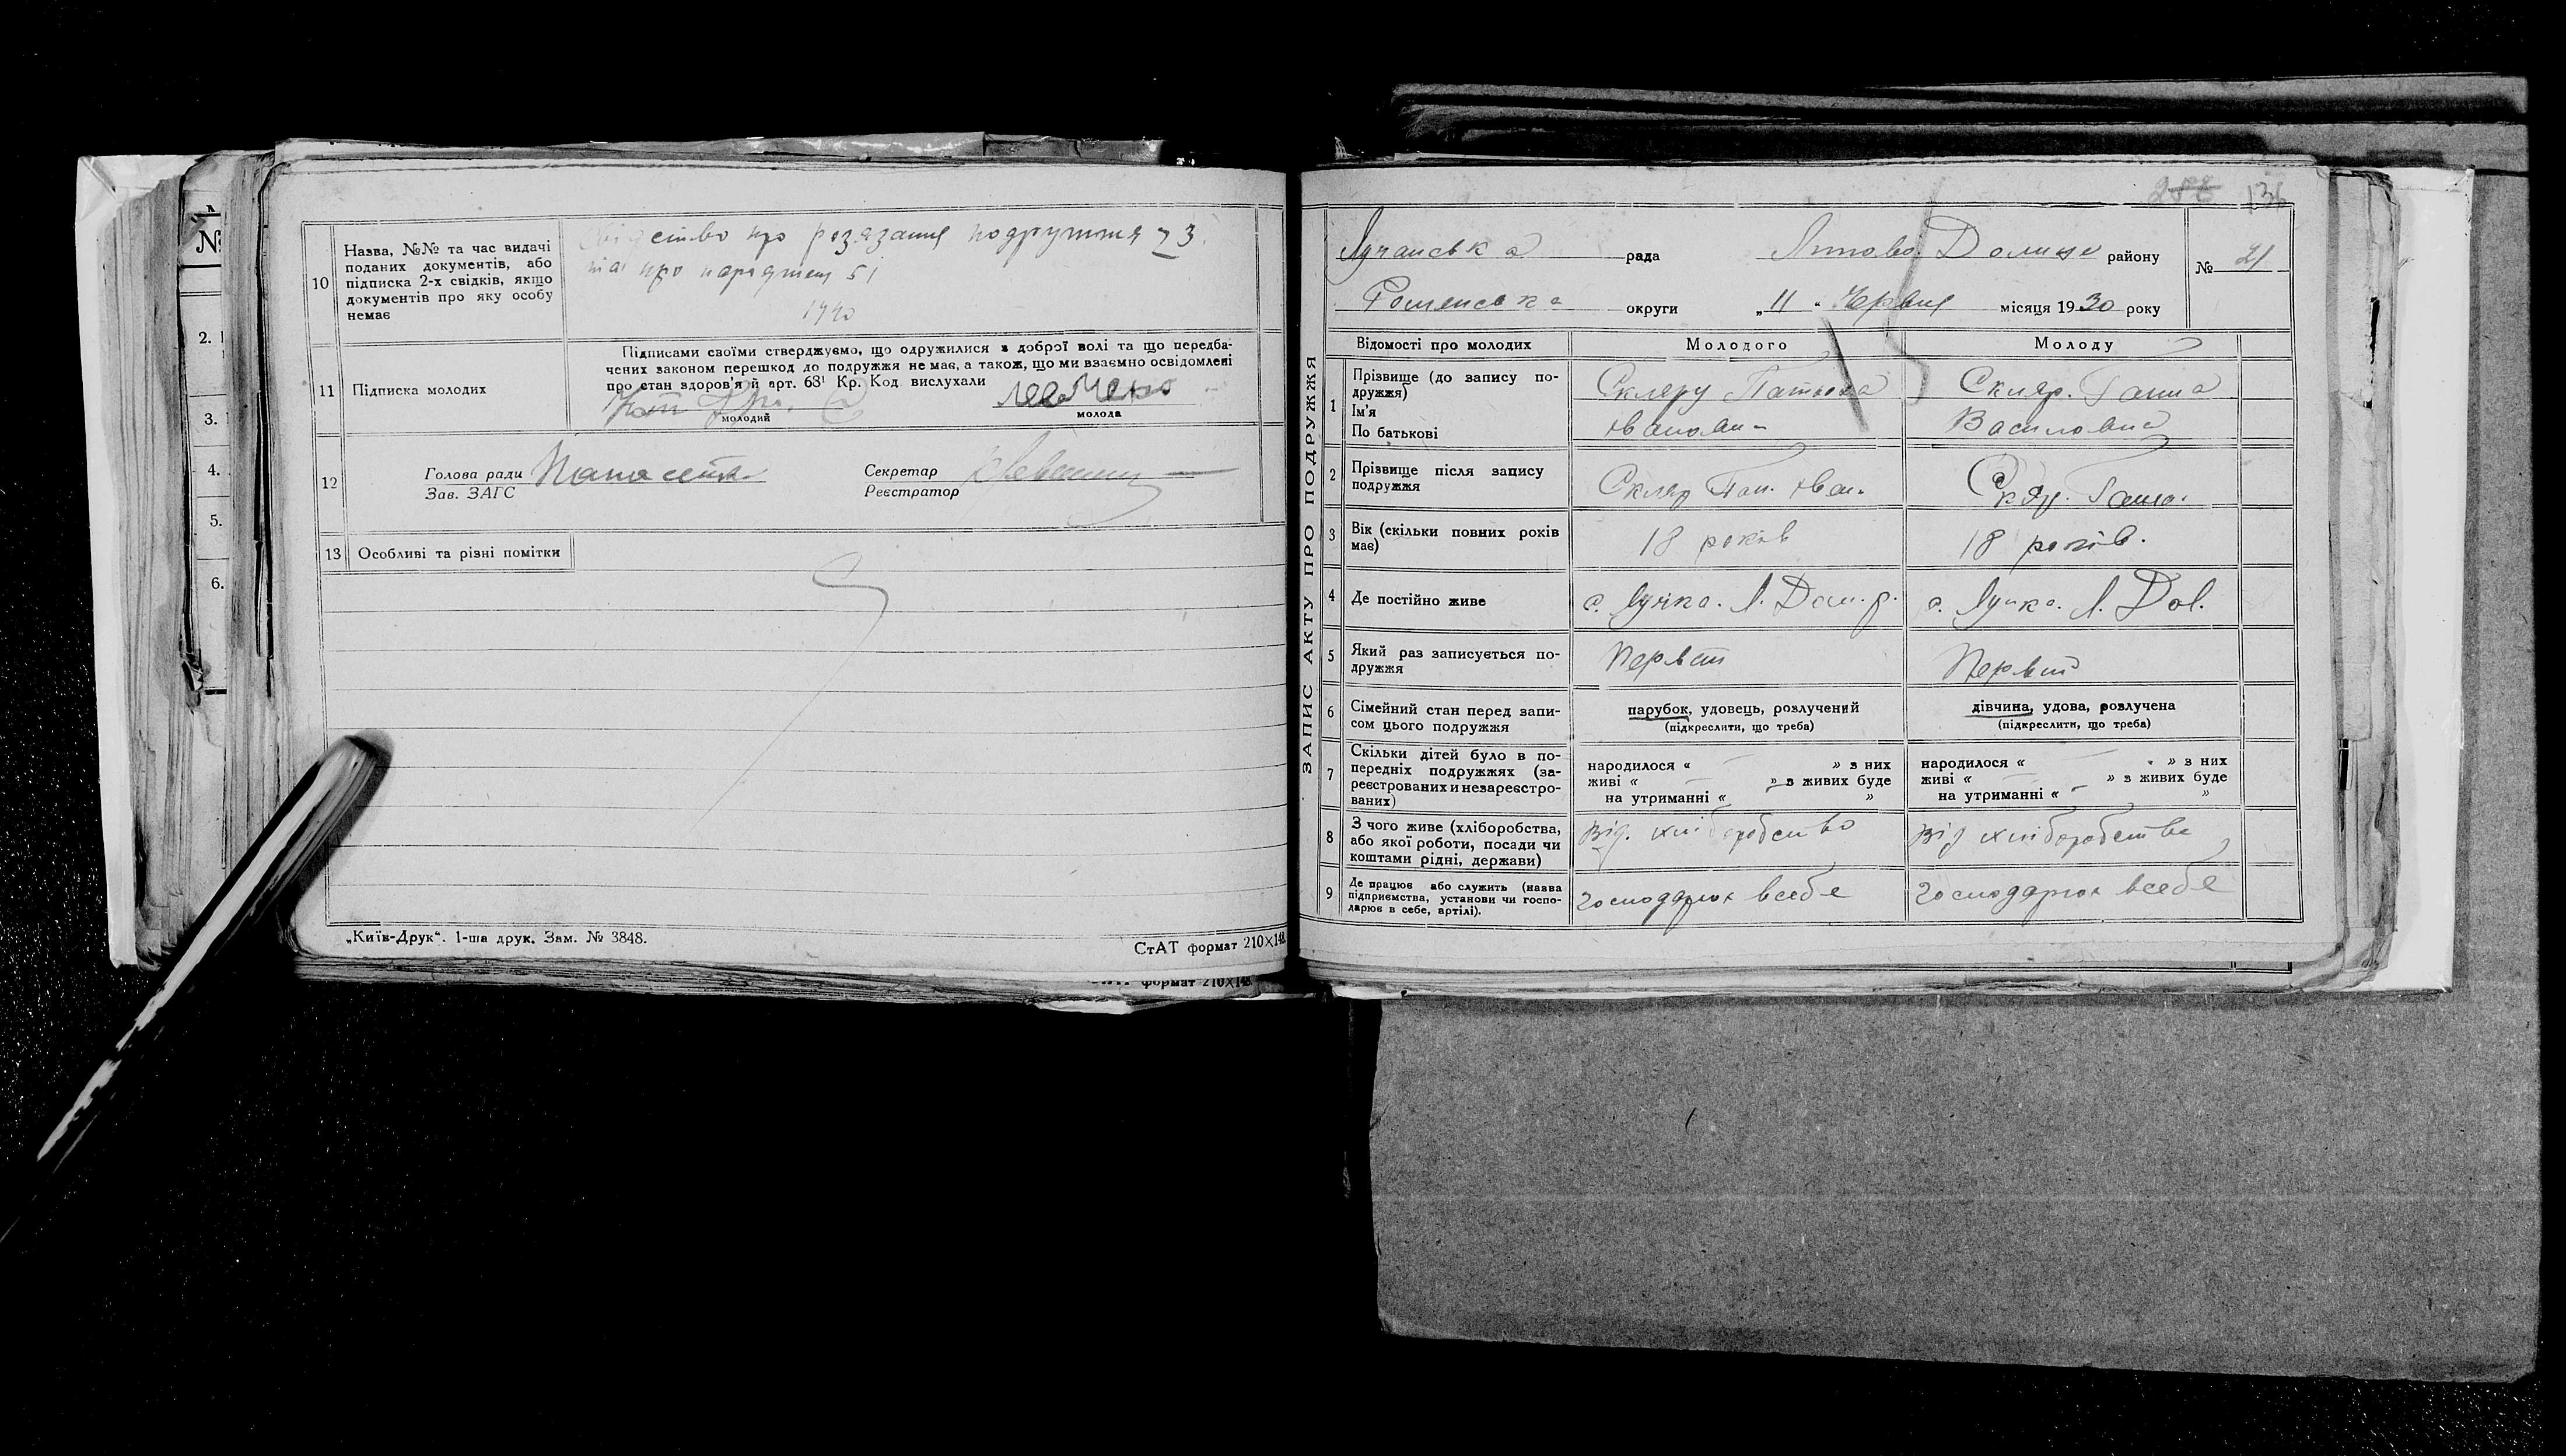 №
2.
3.
4.
5.
6.
10
Назва, №№ та час видачі
поданих документів, або
підписка 2-х свідків, якщо
документів про яку особу
немає
про розязання подружжя 23
про 51
11
Підписка молодих
Підписами своїми стверджуємо, що одружилися з доброї волі та що передба-
чених законом перешкод до подружжя не має, а також, що ми взаємно освідомлені
про стан здоров'я й арт. 68¹ Кр. Код вислухали
молодий
молода
12
Голова ради
Зав. ЗАГС
Секретар
Реєстратор
13
Особливі та різні помітки
„Київ-Друк“. 1-ша друк. Зам. № 3848.
СтАТ формат 210×148.
формат 210×148.
136
Лучанська рада Липово Долинс району
№ 21
Роменська округи „11“ Червня місяця 1930 року
ЗАПИС АКТУ ПРО ПОДРУЖЖЯ
Відомості про молодих
Молодого
Молоду
1
Прізвище (до запису по-
дружжя)
Ім'я
По батькові
Скляру
Скляр. Ганна
Василовна
2
Прізвище після запису
подружжя
Скляр Пан. Иван.
3
Вік (скільки повних років
має)
18 років
18 років.
4
Де постійно живе
с. Лучка. Л. Дол. р.
с. Лучка. Л. Dol.
5
Який раз записується по-
дружжя
Первий
Первий
6
Сімейний стан перед запи-
сом цього подружжя
парубок, удовець, розлучений
(підкреслити, що треба)
дівчина, удова, розлучена
(підкреслити, що треба)
7
Скільки дітей було в по-
передніх подружжях (за-
реєстрованих и незареєстро-
ваних)
народилося « — » з них
живі « — » з живих буде
на утриманні « »
народилося « — » з них
живі « — » з живих буде
на утриманні « — »
8
З чого живе (хліборобства,
або якої роботи, посади чи
коштами рідні, держави)
від. хліборобство
від хліборобства
9
Де працює або служить (назва
підприємства, установи чи госпо-
дарює в себе, артілі).
господарює всебе
господарює всебе